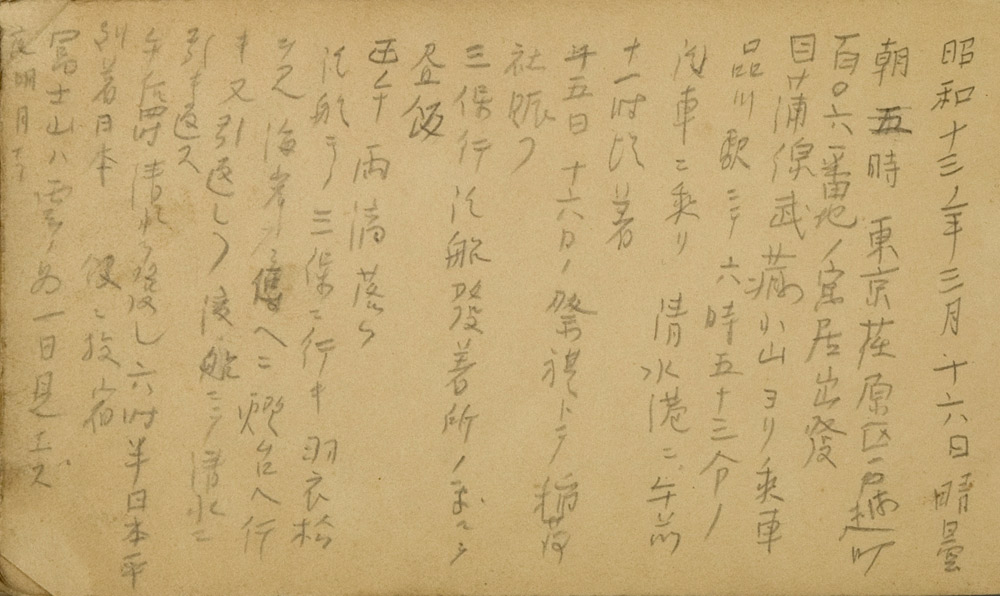 昭和十三年三月十六日晴曇
朝五時 東京荏原区戸越町
百〇六番地ノ寓居出発
目蒲線武蔵小山ヨリ乗車
品川駅ニテ六時五十三分ノ
汽車ニ乗リ 清水港ニ午前
十一時頃着
廿五日 十六日ノ祭礼トテ稲荷
社賑フ
三保行汽船発着所ノ前ニテ
昼飯
正午 雨滴落ツ
汽船ニテ三保ニ行キ羽衣松
ヲ見 海岸ヲ 燈台ヘ行
キ又引返シテ渡船ニテ清水ニ
引キ返ス
午后四時清水ヲ発シ六時半日本平
到着日本 ニ投宿
富士山ハ雲ノ為一日見エズ
夜明月